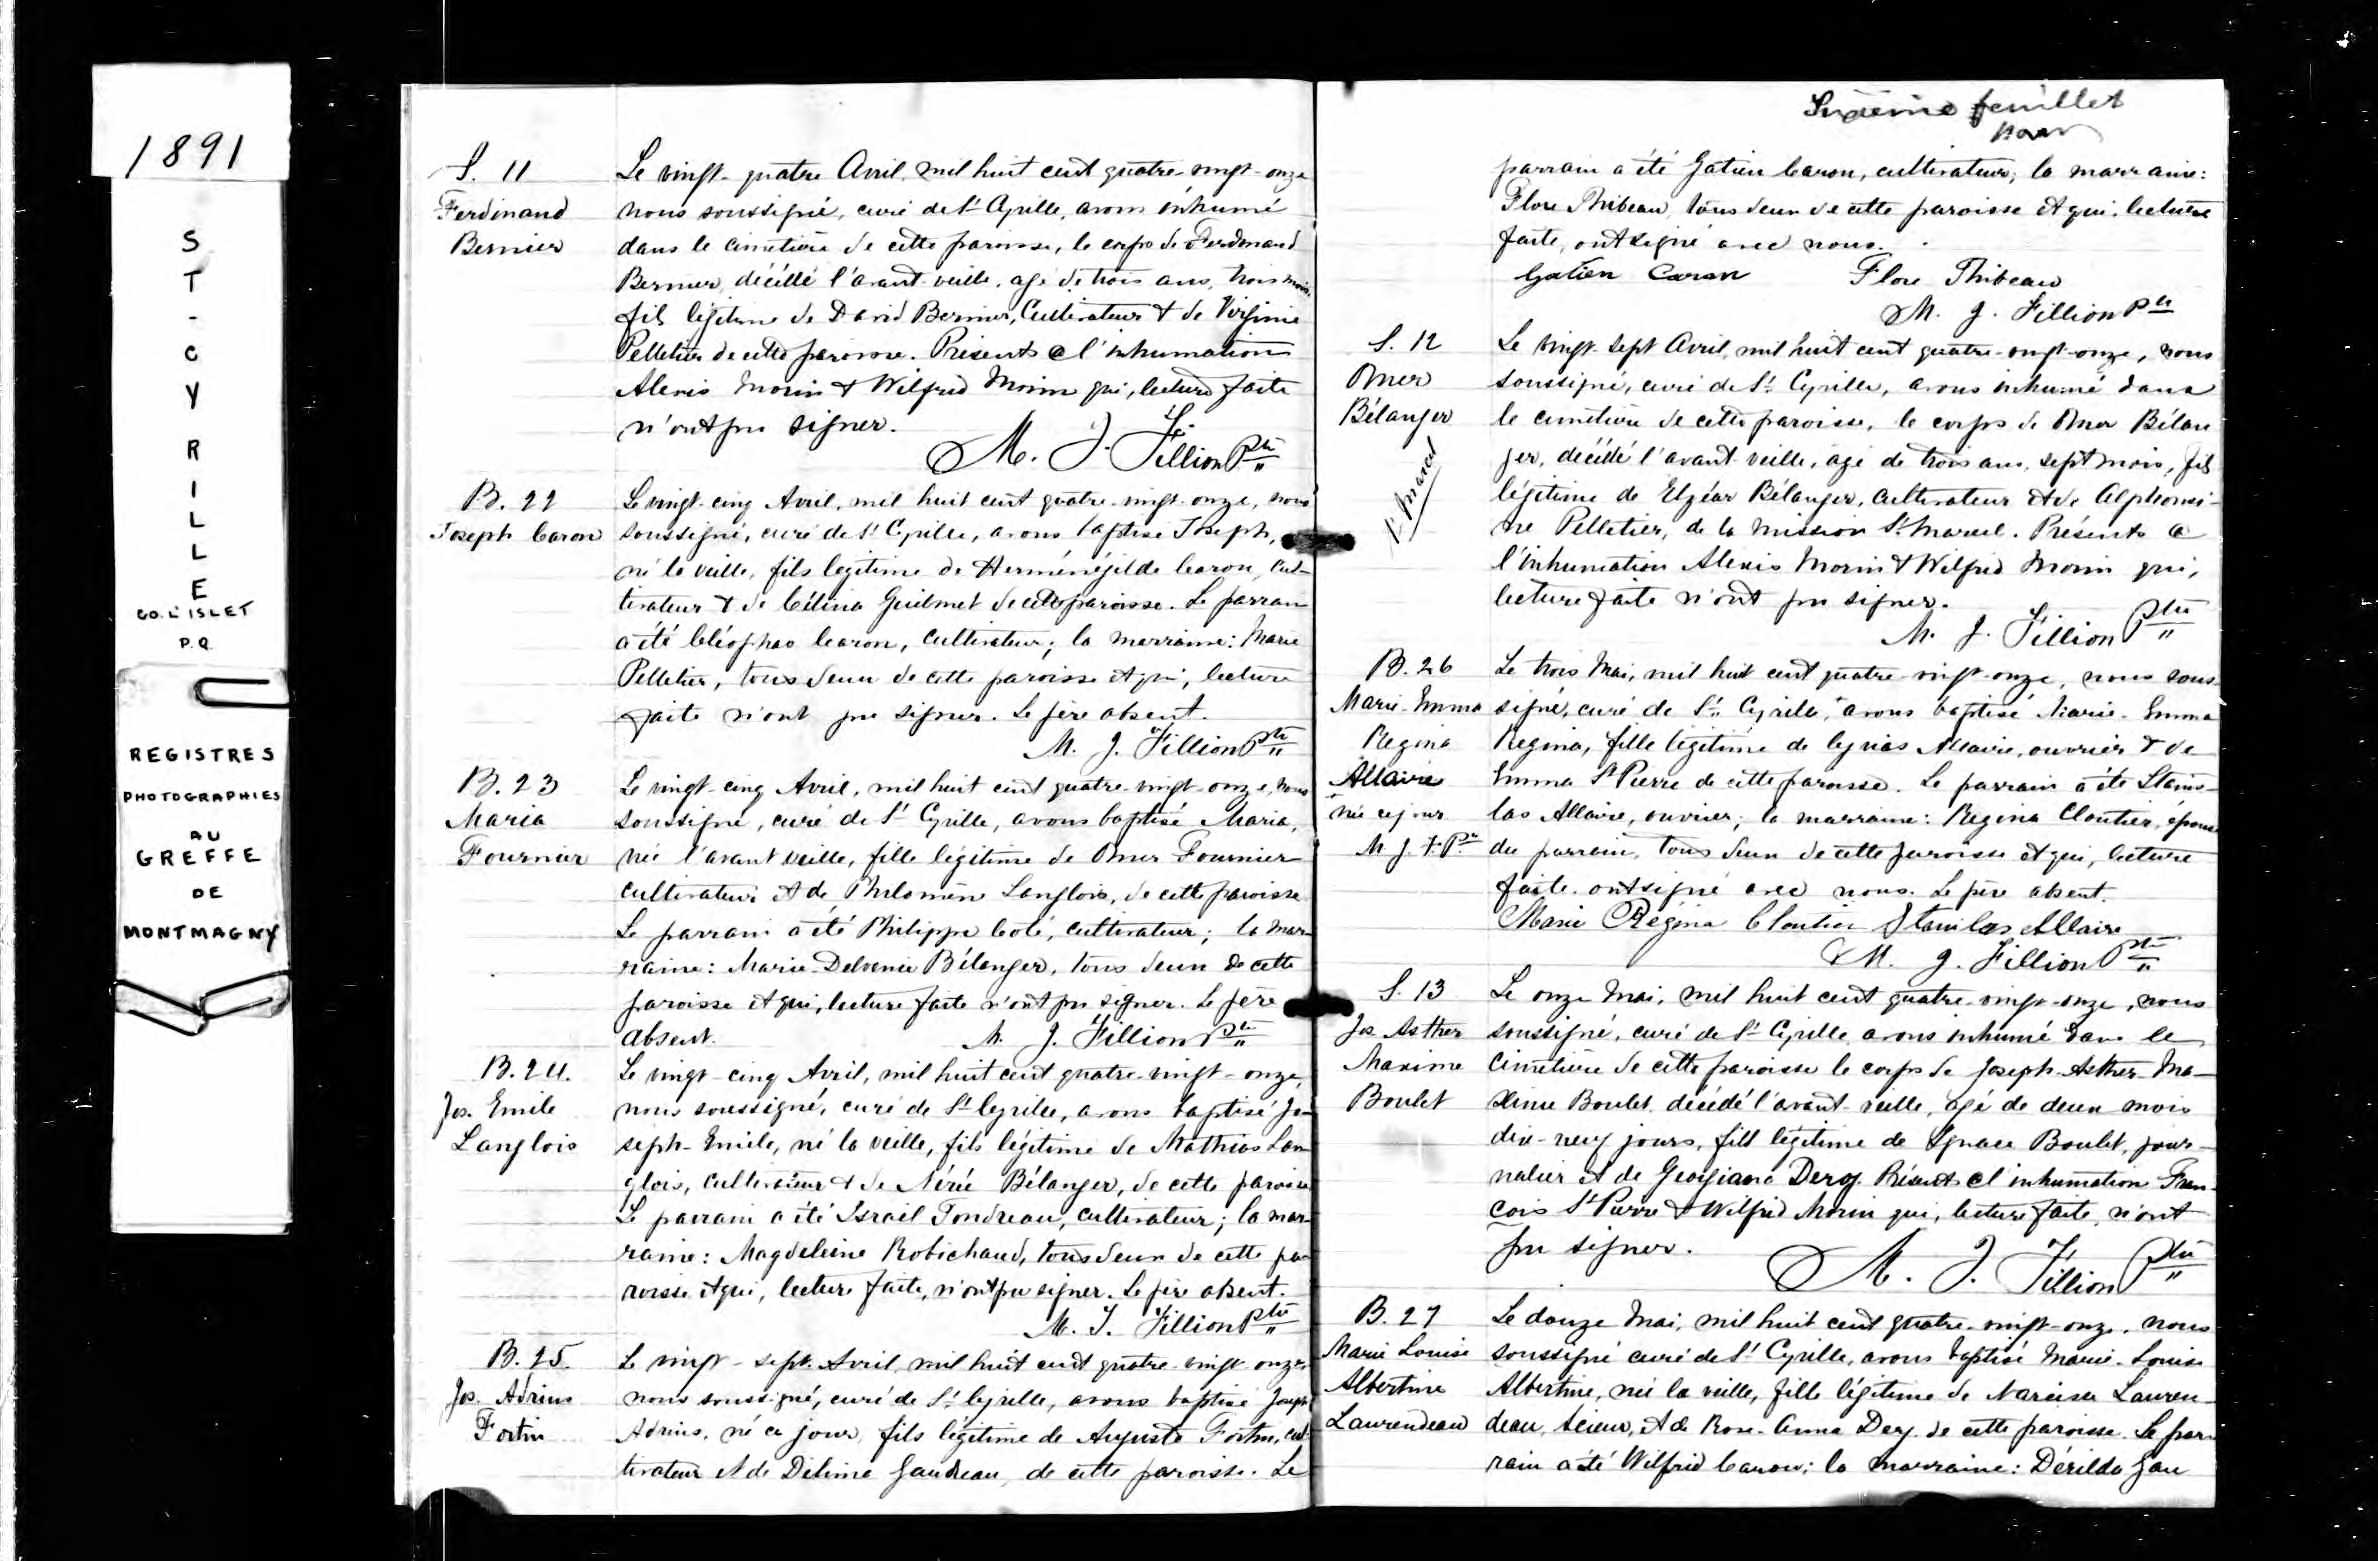 1891
ST-CYRILLE
CO. L'ISLET
P.Q.
REGISTRES
PHOTOGRAPHIES
AU
GREFFE
DE
MONTMAGNY
S. 11
Ferdinand
Bernier
Le vingt-quatre Avril, mil huit cent quatre-vingt-onze
nous soussigné, curé de St Cyrille, avons inhumé
dans le cimetière de cette paroisse, le corps de Ferdinand
Bernier, décédé l'avant-veille, agé de trois ans, trois mois,
fils légitime de David Bernier, Cultivateur & de Virginie
Pelletier de cette paroisse. Présents à l'inhumation
Alexis Morin & Wilfrid Morin qui, lecture faite
n'ont pu signer.
M. J. Fillion Ptre
B. 22
Joseph Caron
Le vingt-cinq Avril, mil huit cent quatre-vingt-onze, nous
soussigné, curé de St Cyrille, avons baptisé Joseph,
né la veille, fils légitime de Herménégilde Caron, cul-
tivateur & de Célina Guilmet de cette paroisse. Le parrain
a été Cléophas Caron, cultivateur; la marraine: Marie
Pelletier, tous deux de cette paroisse et qui, lecture
faite n'ont pu signer. Le père absent.
M. J. Fillion Ptre
B. 23
Maria
Fournier
Le vingt-cinq Avril, mil huit cent quatre-vingt-onze, nous
soussigné, curé de St Cyrille, avons baptisé Maria,
née l'avant veille, fille légitime de Omer Fournier
cultivateur et de Philomèn Langlois, de cette paroisse
Le parrain a été Philippe Coté, cultivateur; la mar-
raine: Marie Delvenie Bélanger, tous deux de cette
paroisse et qui, lecture faite n'ont pu signer. Le père
absent. M. J. Fillion Ptre
B. 24.
Jos. Emile
Langlois
Le vingt-cinq Avril, mil huit cent quatre-vingt-onze,
nous soussigné, curé de St Cyrille, avons baptisé Jo-
seph-Emile, né la veille, fils légitime de Mathias Lan
glois, cultivateur & de Nérée Bélanger, de cette paroisse
Le parrain a été Israël Tondreau, cultivateur; la mar-
raine: Magdeleine Robichaud, tous deux de cette pa-
roisse et qui, lecture faite, n'ont pu signer. Le père absent.
M. J. Fillion Ptre
B. 25.
Jos. Adrius
Fortin
Le vingt-sept Avril, mil huit cent quatre-vingt-onze,
nous soussigné, curé de St Cyrille, avons baptisé Joseph
Adrius, né ce jour, fils légitime de Auguste Fortin, cul-
tivateur et de Délima Gaudreau, de cette paroisse. Le
Sixième feuillet
parrain a été Gatien Caron, cultivateur; la marraine:
Flore Thibeau, tous deux de cette paroisse et qui, lecture
faite, ont signé avec nous.
Gatien Caron Flore Thibeau
M. J. Fillion Ptre
S. 12
Omer
Bélanger
St Marcel
Le vingt-sept Avril, mil huit cent quatre-vingt-onze, nous
soussigné, curé de St Cyrille, avons inhumé dans
le cimetière de cette paroisse, le corps de Omer Bélan
ger, décédé l'avant-veille, agé de trois ans, sept mois, fils
légitime de Elzéar Bélanger, cultivateur et de Alphonsi-
ne Pelletier, de la mission St Marcel. Présents à
l'inhumation Alexis Morin & Wilfrid Morin qui,
lecture faite n'ont pu signer.
M. J. Fillion Ptre
B. 26
Marie-Emma
Regina
Allaire
née ce jour
M. J. F. Ptre
Le trois Mai, mil huit cent quatre-vingt-onze, nous sous-
signé, curé de St Cyrille, avons baptisé Marie-Emma
Regina, fille légitime de Cyrias Allaire, ouvrier & de
Emma St Pierre de cette paroisse. Le parrain a été Stanis-
las Allaire, ouvrier; la marraine: Regina Cloutier, épouse
du parrain, tous deux de cette paroisse et qui, lecture
faite ont signé avec nous. Le père absent.
Marie Régina Cloutier Stanilas Allaire
M. J. Fillion Ptre
S. 13
Jos Asther
Maxime
Boulet
Le onze Mai, mil huit cent quatre-vingt-onze, nous
soussigné, curé de St Cyrille avons inhumé dans le
cimetière de cette paroisse le corps de Joseph-Asther-Ma-
xime Boulet, décédé l'avant-veille, agé de deux mois
dix-neuf jours, fils légitime de Ignace Boulet, jour-
nalier et de Georgiana Dery. Présents à l'inhumation Fran-
çois St Pierre & Wilfrid Morin qui, lecture faite, n'ont
pu signer.
M. J. Fillion Ptre
B. 27
Marie Louise
Albertine
Laurendeau
Le douze Mai, mil huit cent quatre-vingt-onze, nous
soussigné curé de St Cyrille, avons baptisé Marie-Louise
Albertine, née la veille, fille légitime de Narcisse Lauren-
deau, scieur, et de Rose-Anna Dery de cette paroisse. Le par-
rain a été Wilfrid Caron; la marraine: Dérilda Gau